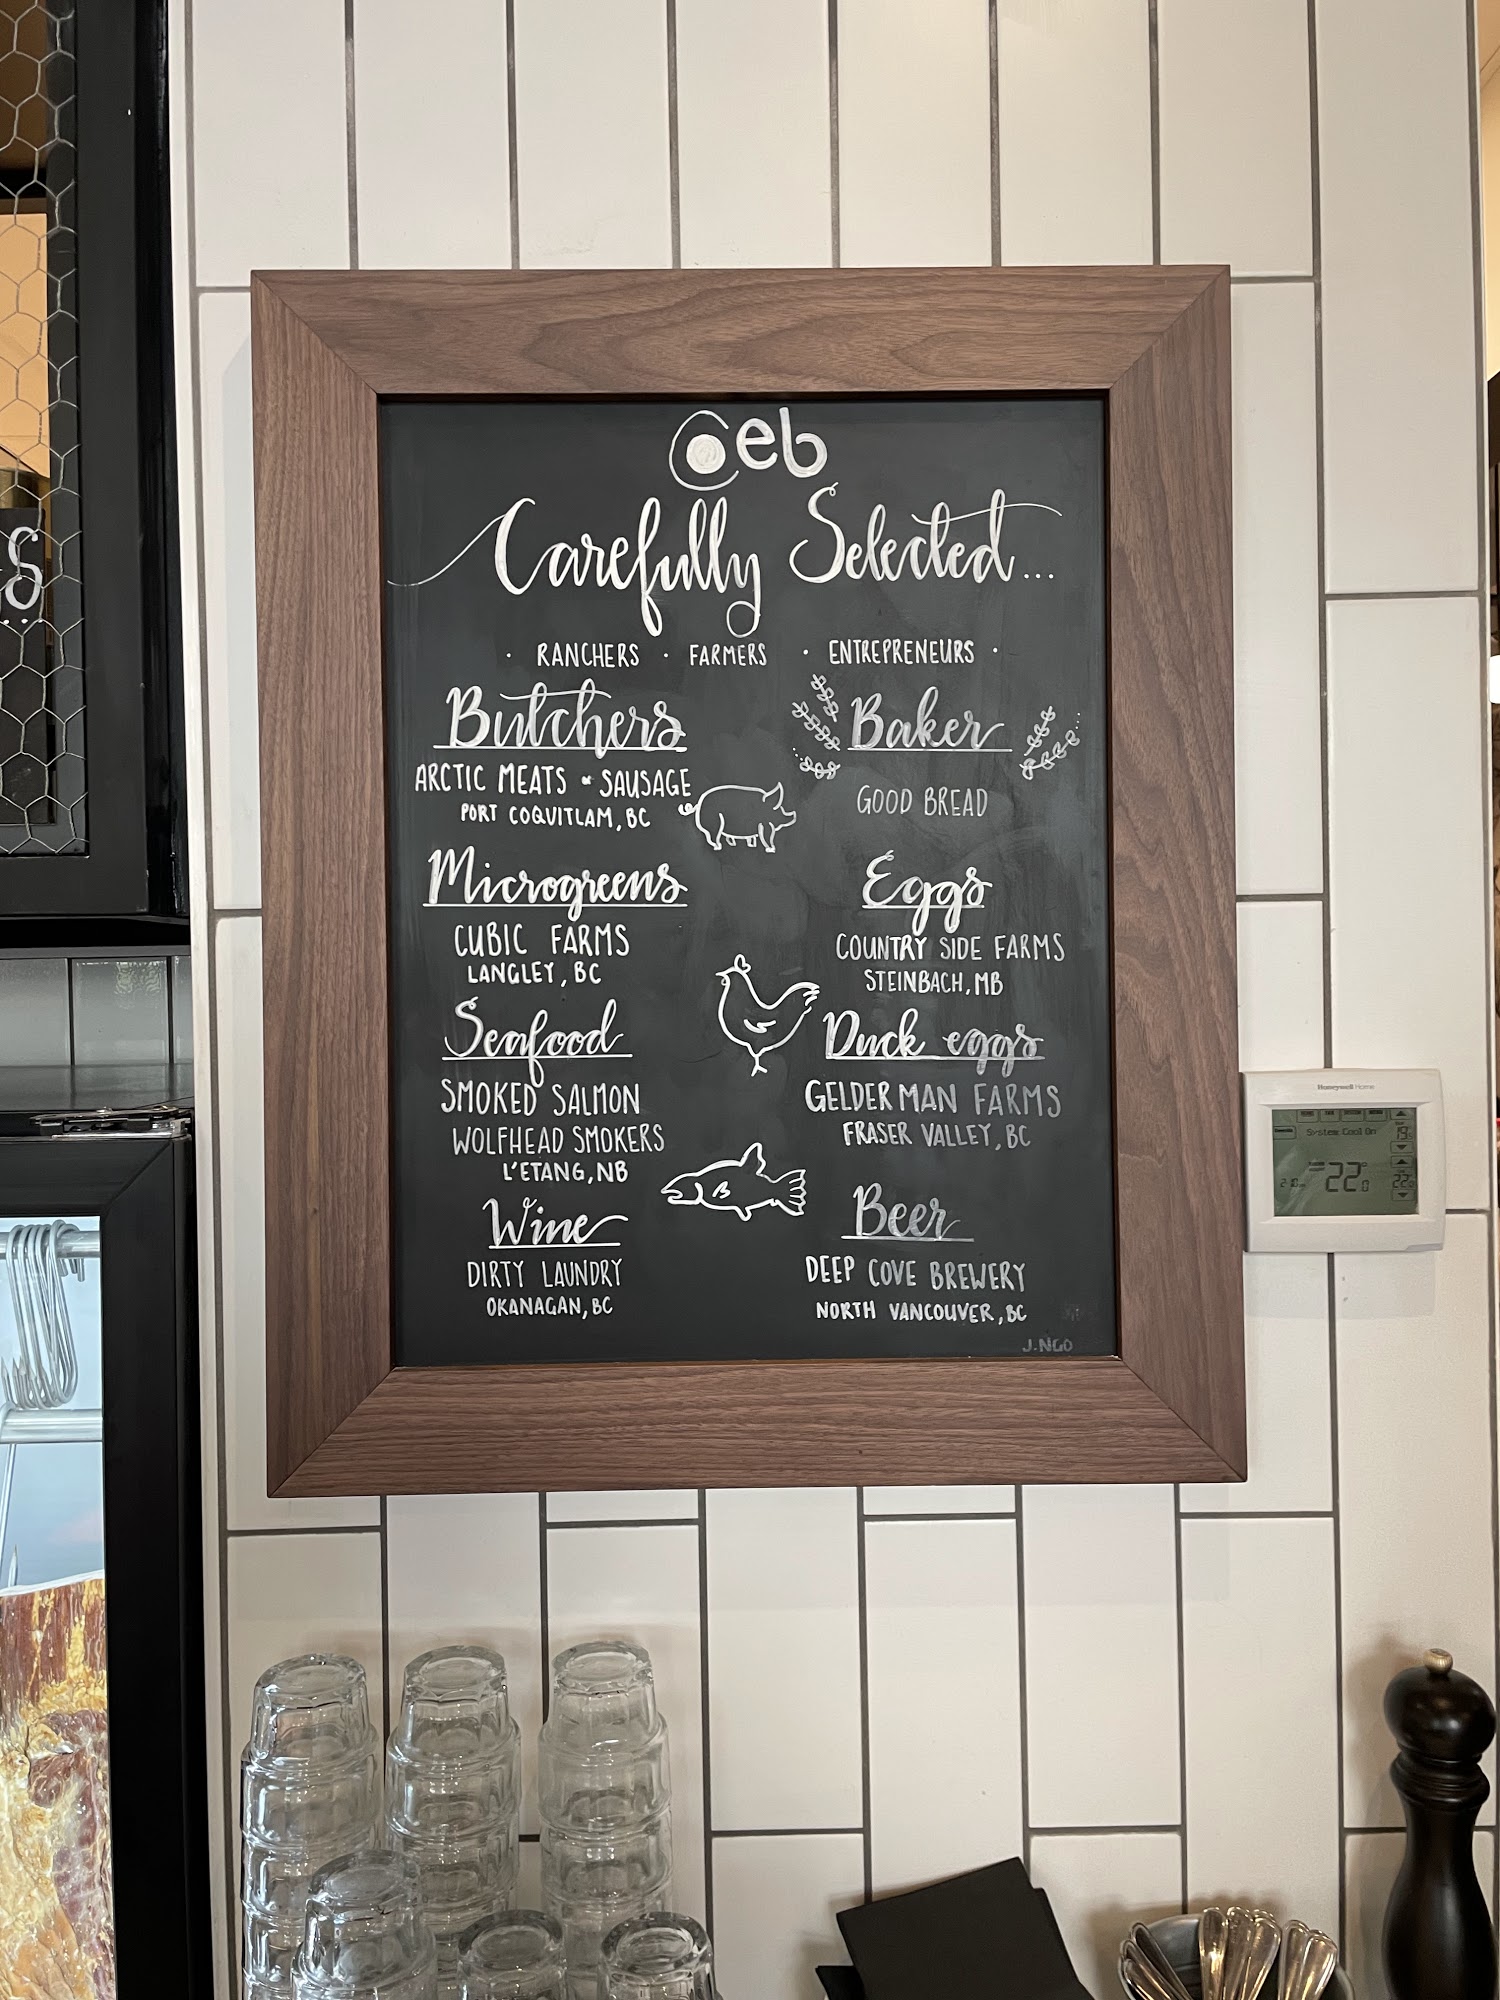 Oeb
Carefully Selected...
· RANCHERS · FARMERS · ENTREPRENEURS ·
Butchers
ARCTIC MEATS & SAUSAGE
PORT COQUITLAM, BC
Microgreens
CUBIC FARMS
LANGLEY, BC
Seafood
SMOKED SALMON
WOLFHEAD SMOKERS
L'ETANG, NB
Wine
DIRTY LAUNDRY
OKANAGAN, BC
Baker
GOOD BREAD
Eggs
COUNTRY SIDE FARMS
STEINBACH, MB
Duck eggs
GELDERMAN FARMS
FRASER VALLEY, BC
Beer
DEEP COVE BREWERY
NORTH VANCOUVER, BC
J.NGO
Honeywell Home
System Cool On
22